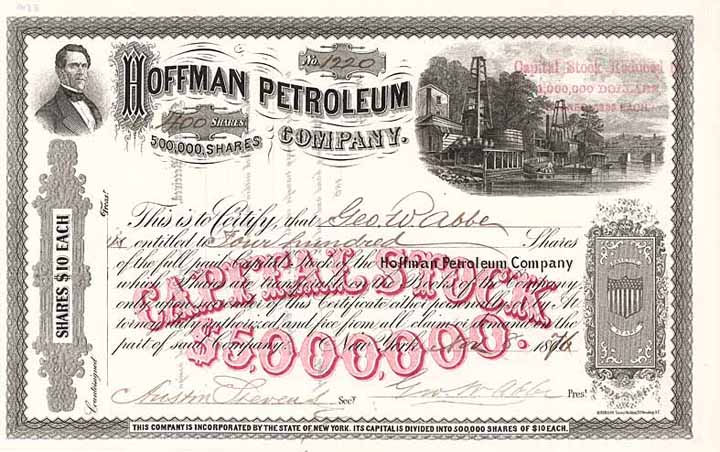 No. 1220
HOFFMAN PETROLEUM
COMPANY.
400 SHARES
500,000, SHARES
Capital Stock Reduced
1,000,000 DOLLARS
EACH.
Treas.
SHARES $10 EACH
Countersigned
This is to Certify, that Geo. W. Abbe
is entitled to Four hundred Shares
of the full paid Capital Stock of the Hoffman Petroleum Company
of this Certificate either personally or by At
torney duly authorized and free from all claim or demand on the
part of said Company. New York 8 1876
CAPITAL STOCK
$5,000,000.
Austin Stevens Secy. Geo. W. Abbe Prest.
THIS COMPANY IS INCORPORATED BY THE STATE OF NEW YORK. ITS CAPITAL IS DIVIDED INTO 500,000 SHARES OF $10 EACH.